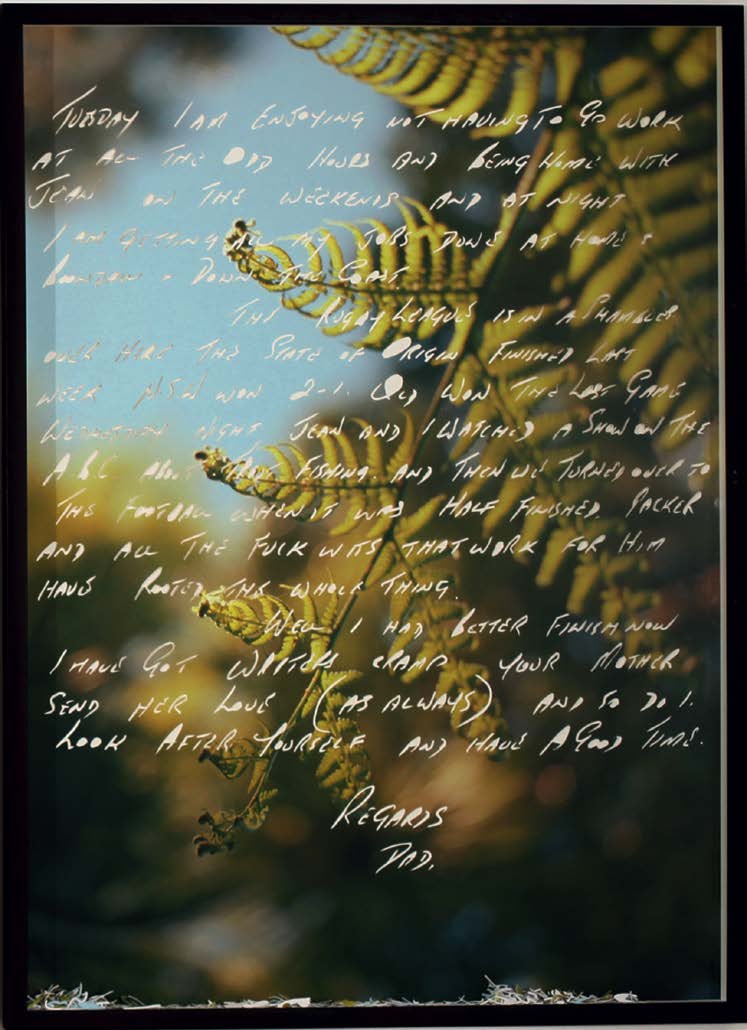 TUESDAY I AM ENJOYING NOT HAVING TO GO WORK
AT ALL THE ODD HOURS AND BEING HOME WITH
JEAN ON THE WEEKENDS AND AT NIGHT
I AM GETTING ALL MY JOBS DONE AT HOME &
DOWN THE COAST.
THE RUGBY LEAGUE IS IN A SHAMBLES
OVER HERE THE STATE OF ORIGIN FINISHED LAST
WEEK N.S.W WON 2-1. QLD WON THE LAST GAME
WEDNESDAY NIGHT JEAN AND I WATCHED A SHOW ON THE
A.B.C ABOUT TROUT FISHING. AND THEN WE TURNED OVER TO
THE FOOTBALL WHEN IT WAS HALF FINISHED. PACKER
AND ALL THE FUCK WITS THAT WORK FOR HIM
HAVE ROOTED THE WHOLE THING.
WELL I HAD BETTER FINISH NOW
I HAVE GOT WRITERS CRAMP YOUR MOTHER
SEND HER LOVE (AS ALWAYS) AND SO DO I.
LOOK AFTER YOURSELF AND HAVE A GOOD TIME.
REGARDS
DAD.